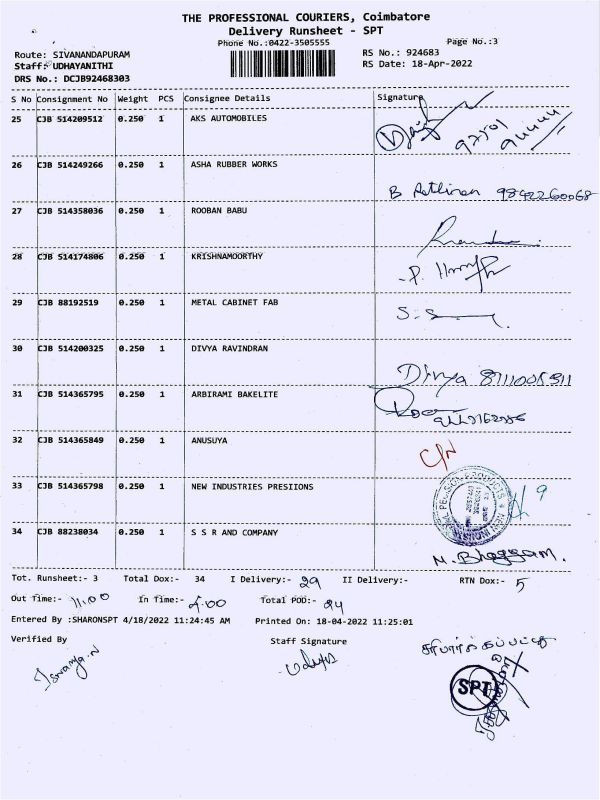 THE PROFESSIONAL COURIERS, Coimbatore
Delivery Runsheet - SPT
Phone No.:0422-3505555
Page No.:3
Route: SIVANANDAPURAM
RS No.: 924683
Staff: UDHAYANITHI
RS Date: 18-Apr-2022
DRS No.: DCJB92468303
S No Consignment No Weight PCS Consignee Details Signature
25 CJB 514209512 0.250 1 AKS AUTOMOBILES
26 CJB 514249266 0.250 1 ASHA RUBBER WORKS
9842260068
27 CJB 514358036 0.250 1 ROOBAN BABU
28 CJB 514174806 0.250 1 KRISHNAMOORTHY
29 CJB 88192519 0.250 1 METAL CABINET FAB
30 CJB 514200325 0.250 1 DIVYA RAVINDRAN
Divya
31 CJB 514365795 0.250 1 ARBIRAMI BAKELITE
32 CJB 514365849 0.250 1 ANUSUYA
33 CJB 514365798 0.250 1 NEW INDUSTRIES PRESIIONS
34 CJB 88238034 0.250 1 S S R AND COMPANY
Tot. Runsheet:- 3 Total Dox:- 34 I Delivery:- 29 II Delivery:- RTN Dox:- 5
Out Time:- 11.00 In Time:- 4.00 Total POD:- 24
Entered By :SHARONSPT 4/18/2022 11:24:45 AM Printed On: 18-04-2022 11:25:01
Verified By Staff Signature
SPT